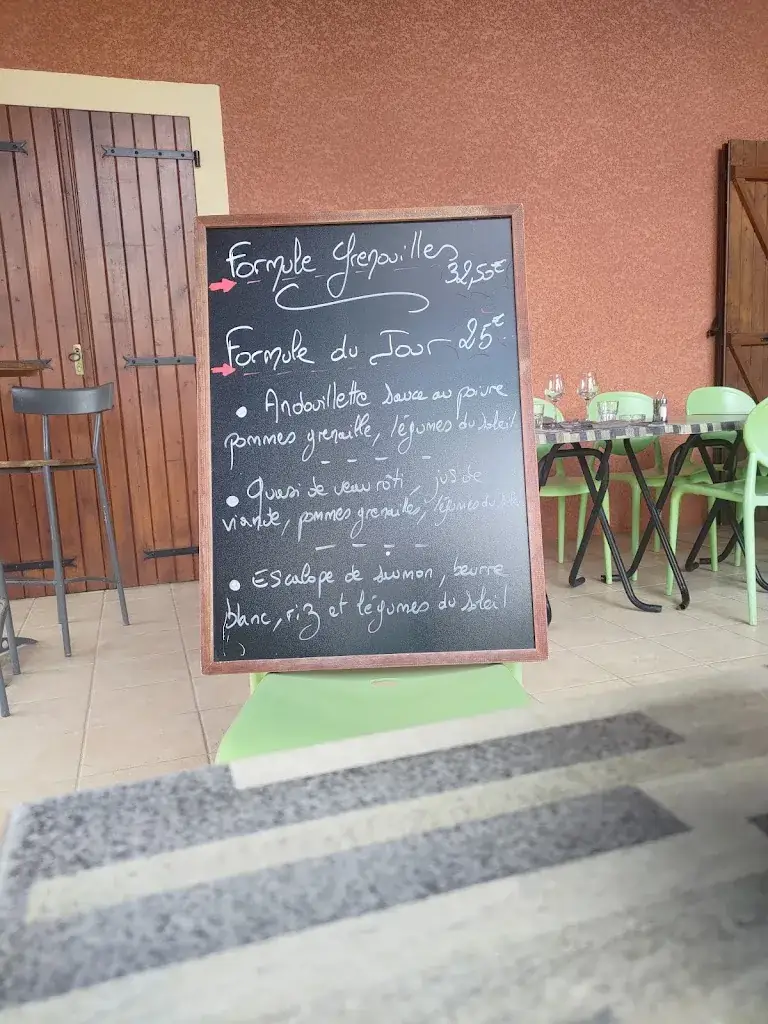 Formule Grenouilles
32,50€
Formule du Jour 25€
• Andouillette sauce au poivre
pommes grenaille, légumes du soleil
• Quasi de veau rôti, jus de
viande, pommes grenailles, légumes du soleil
• Escalope de saumon, beurre
blanc, riz et légumes du soleil